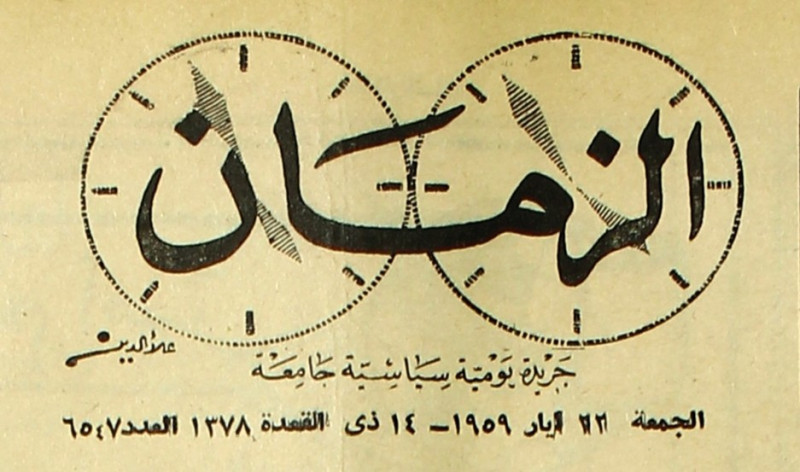 الزمان
علاءالدين
جريدة يومية سياسية جامعة
الجمعة ٢٢ ايار ١٩٥٩ – ١٤ ذى القعدة ١٣٧٨ العدد ٦٥٤٧